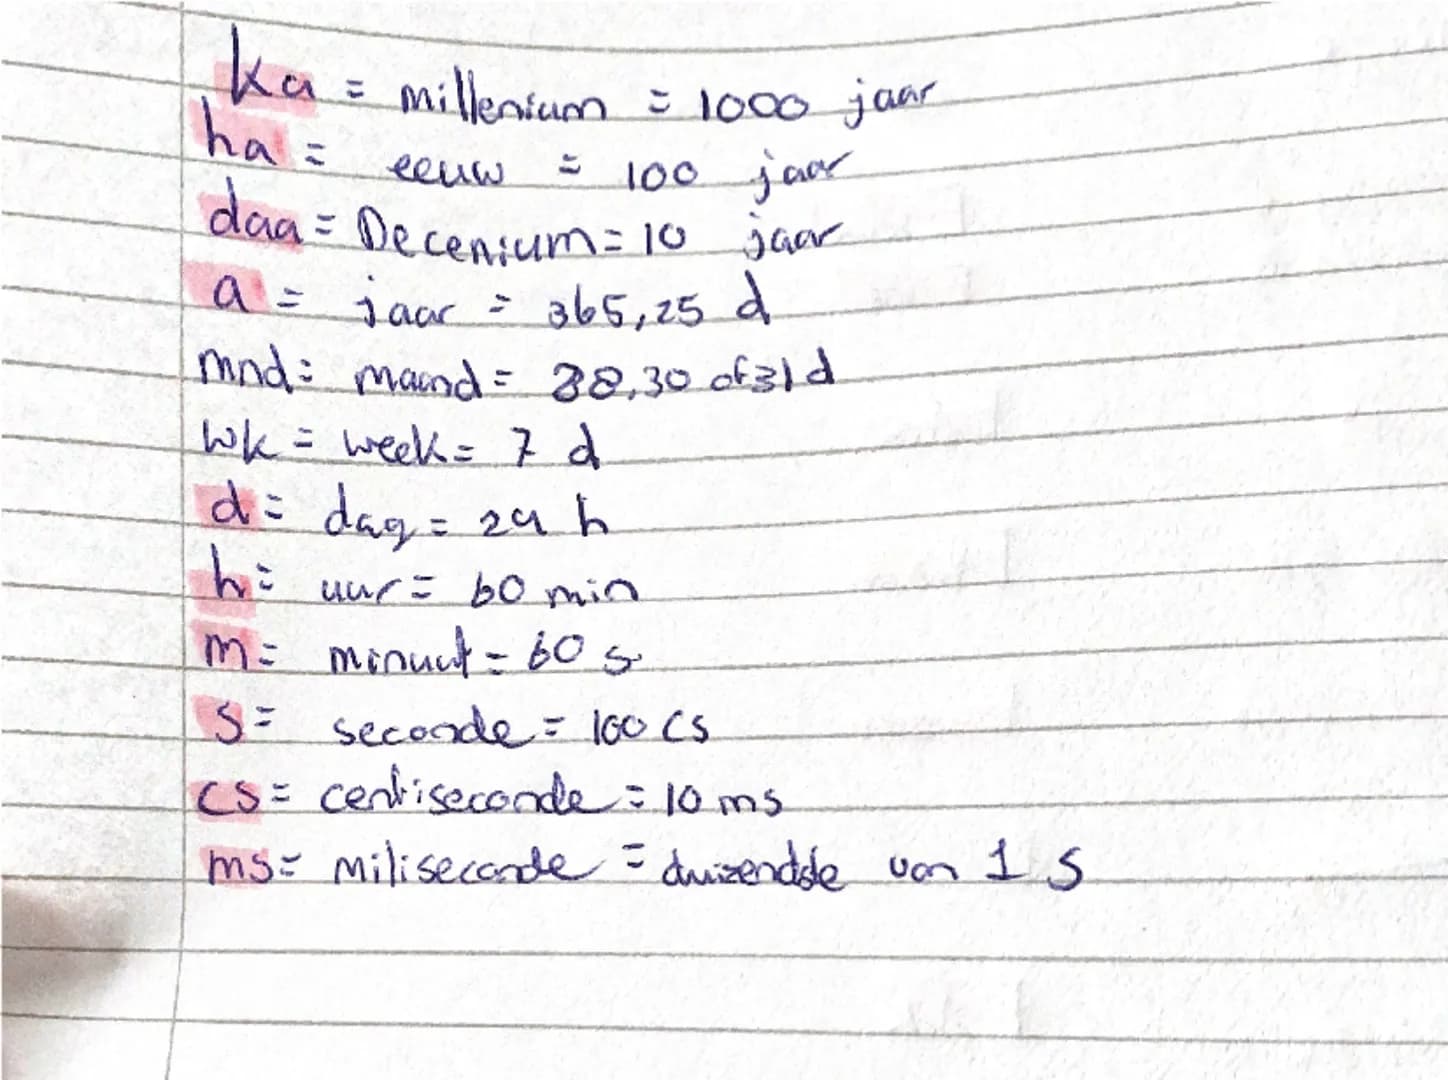 ka = millenium = 1000 jaar
ha = eeuw = 100 jaar
daa = Decenium = 10 jaar
a = jaar = 365,25 d
mnd = maand = 28,30 of 31 d
wk = week = 7 d
d = dag = 24 h
h = uur = 60 min
m = minuut = 60 s
s = seconde = 100 cs
cs = centiseconde = 10 ms
ms = miliseconde = duizendste van 1 s